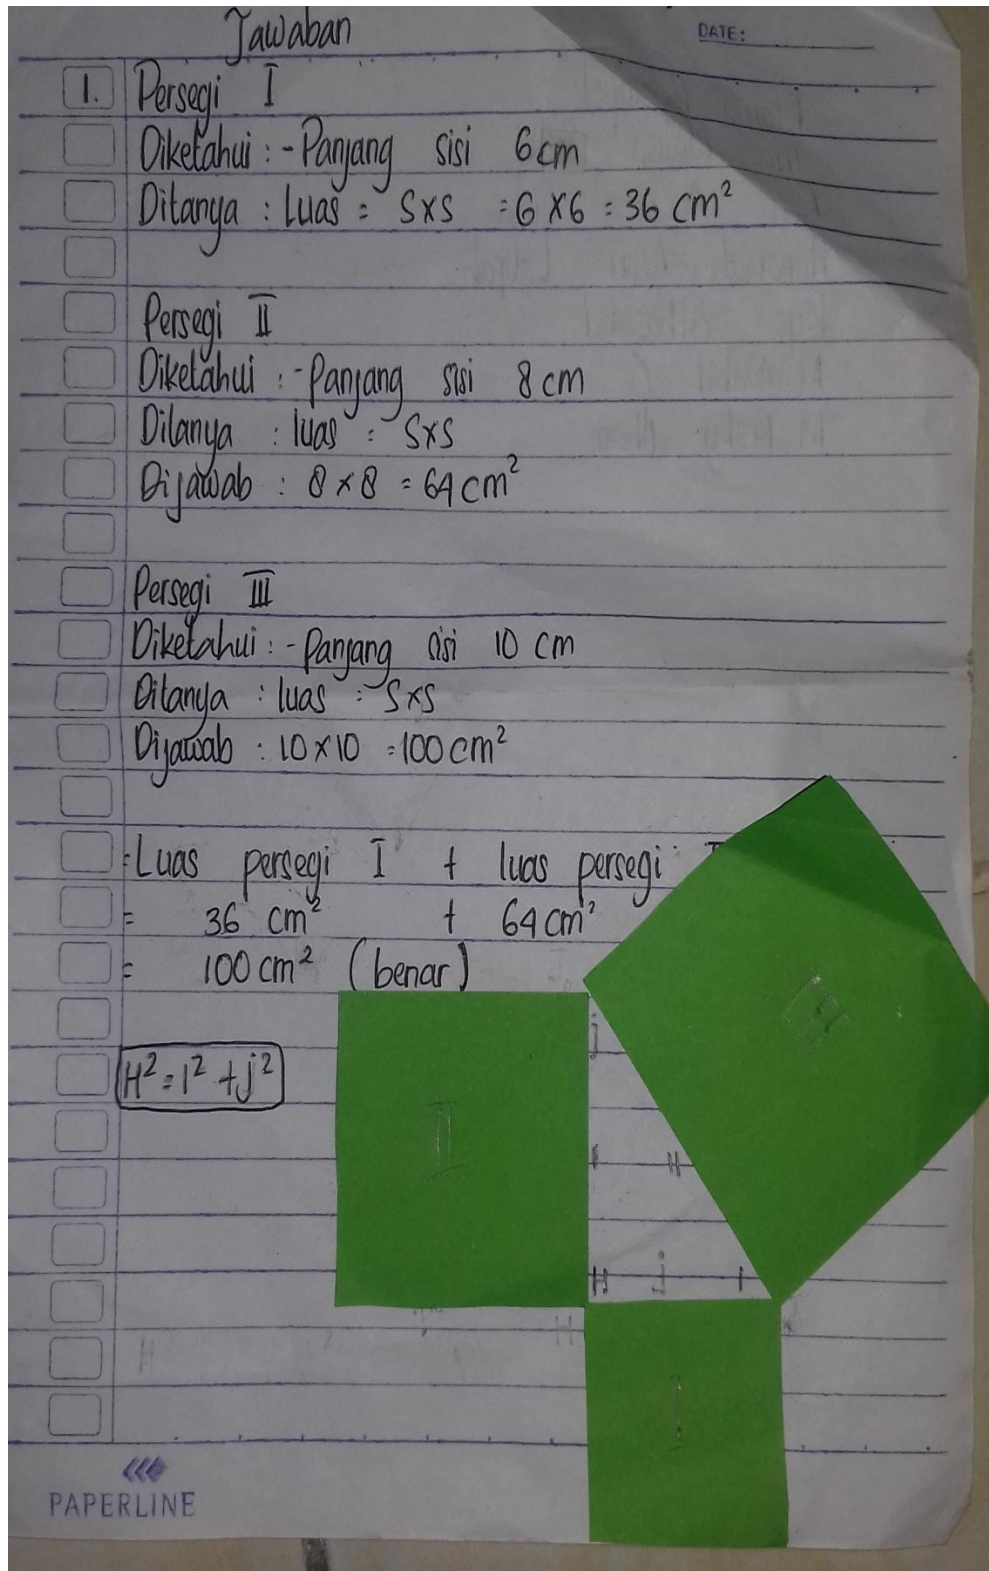 Jawaban
DATE:
1. Persegi I
Diketahui : - Panjang sisi 6 cm
Ditanya : Luas = S x S = 6 x 6 = 36 cm²
Persegi II
Diketahui : - Panjang sisi 8 cm
Ditanya : luas = S x S
Dijawab : 8 x 8 = 64 cm²
Persegi III
Diketahui : - Panjang sisi 10 cm
Ditanya : luas = S x S
Dijawab : 10 x 10 = 100 cm²
= Luas persegi I + luas persegi
= 36 cm² + 64 cm²
= 100 cm² (benar)
j
H² = I² + j²
II
H
H j I
I
PAPERLINE